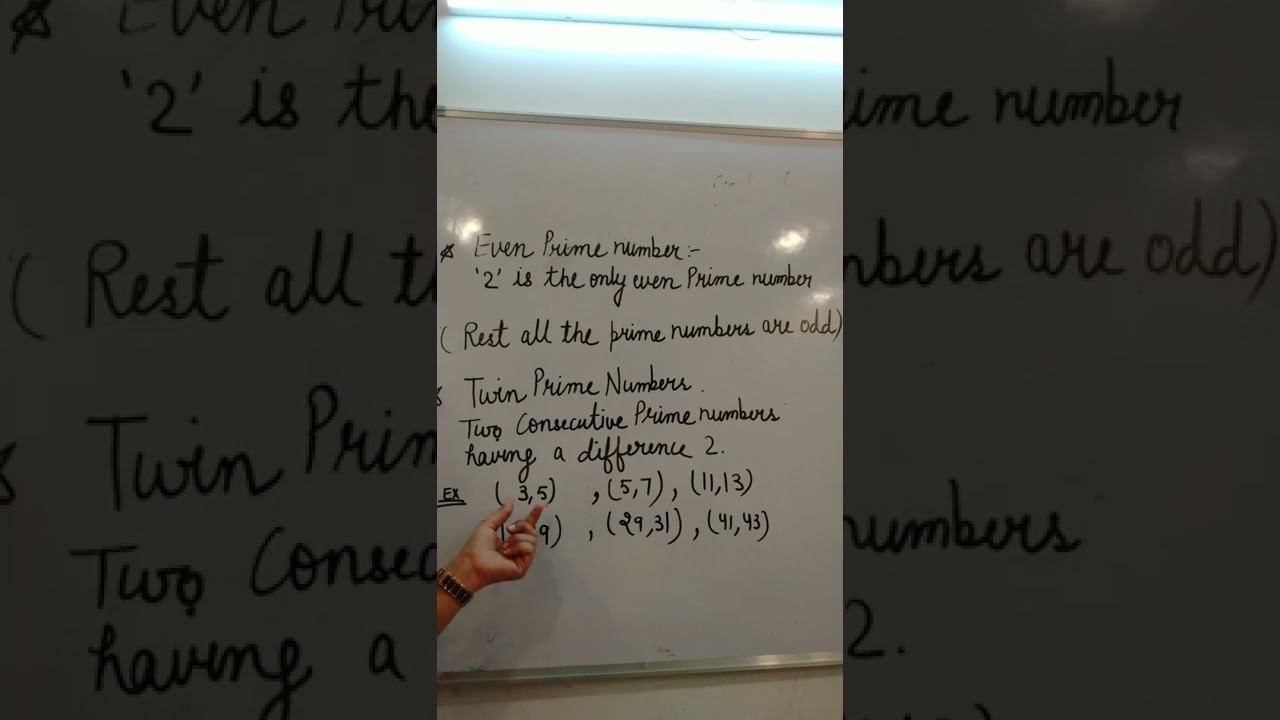 Even Prime number:-
'2' is the only even Prime number
(Rest all the prime numbers are odd)
Twin Prime Numbers.
Two Consecutive Prime numbers
having a difference 2.
Ex (3,5) , (5,7) , (11,13)
9) , (29,31) , (41,43)